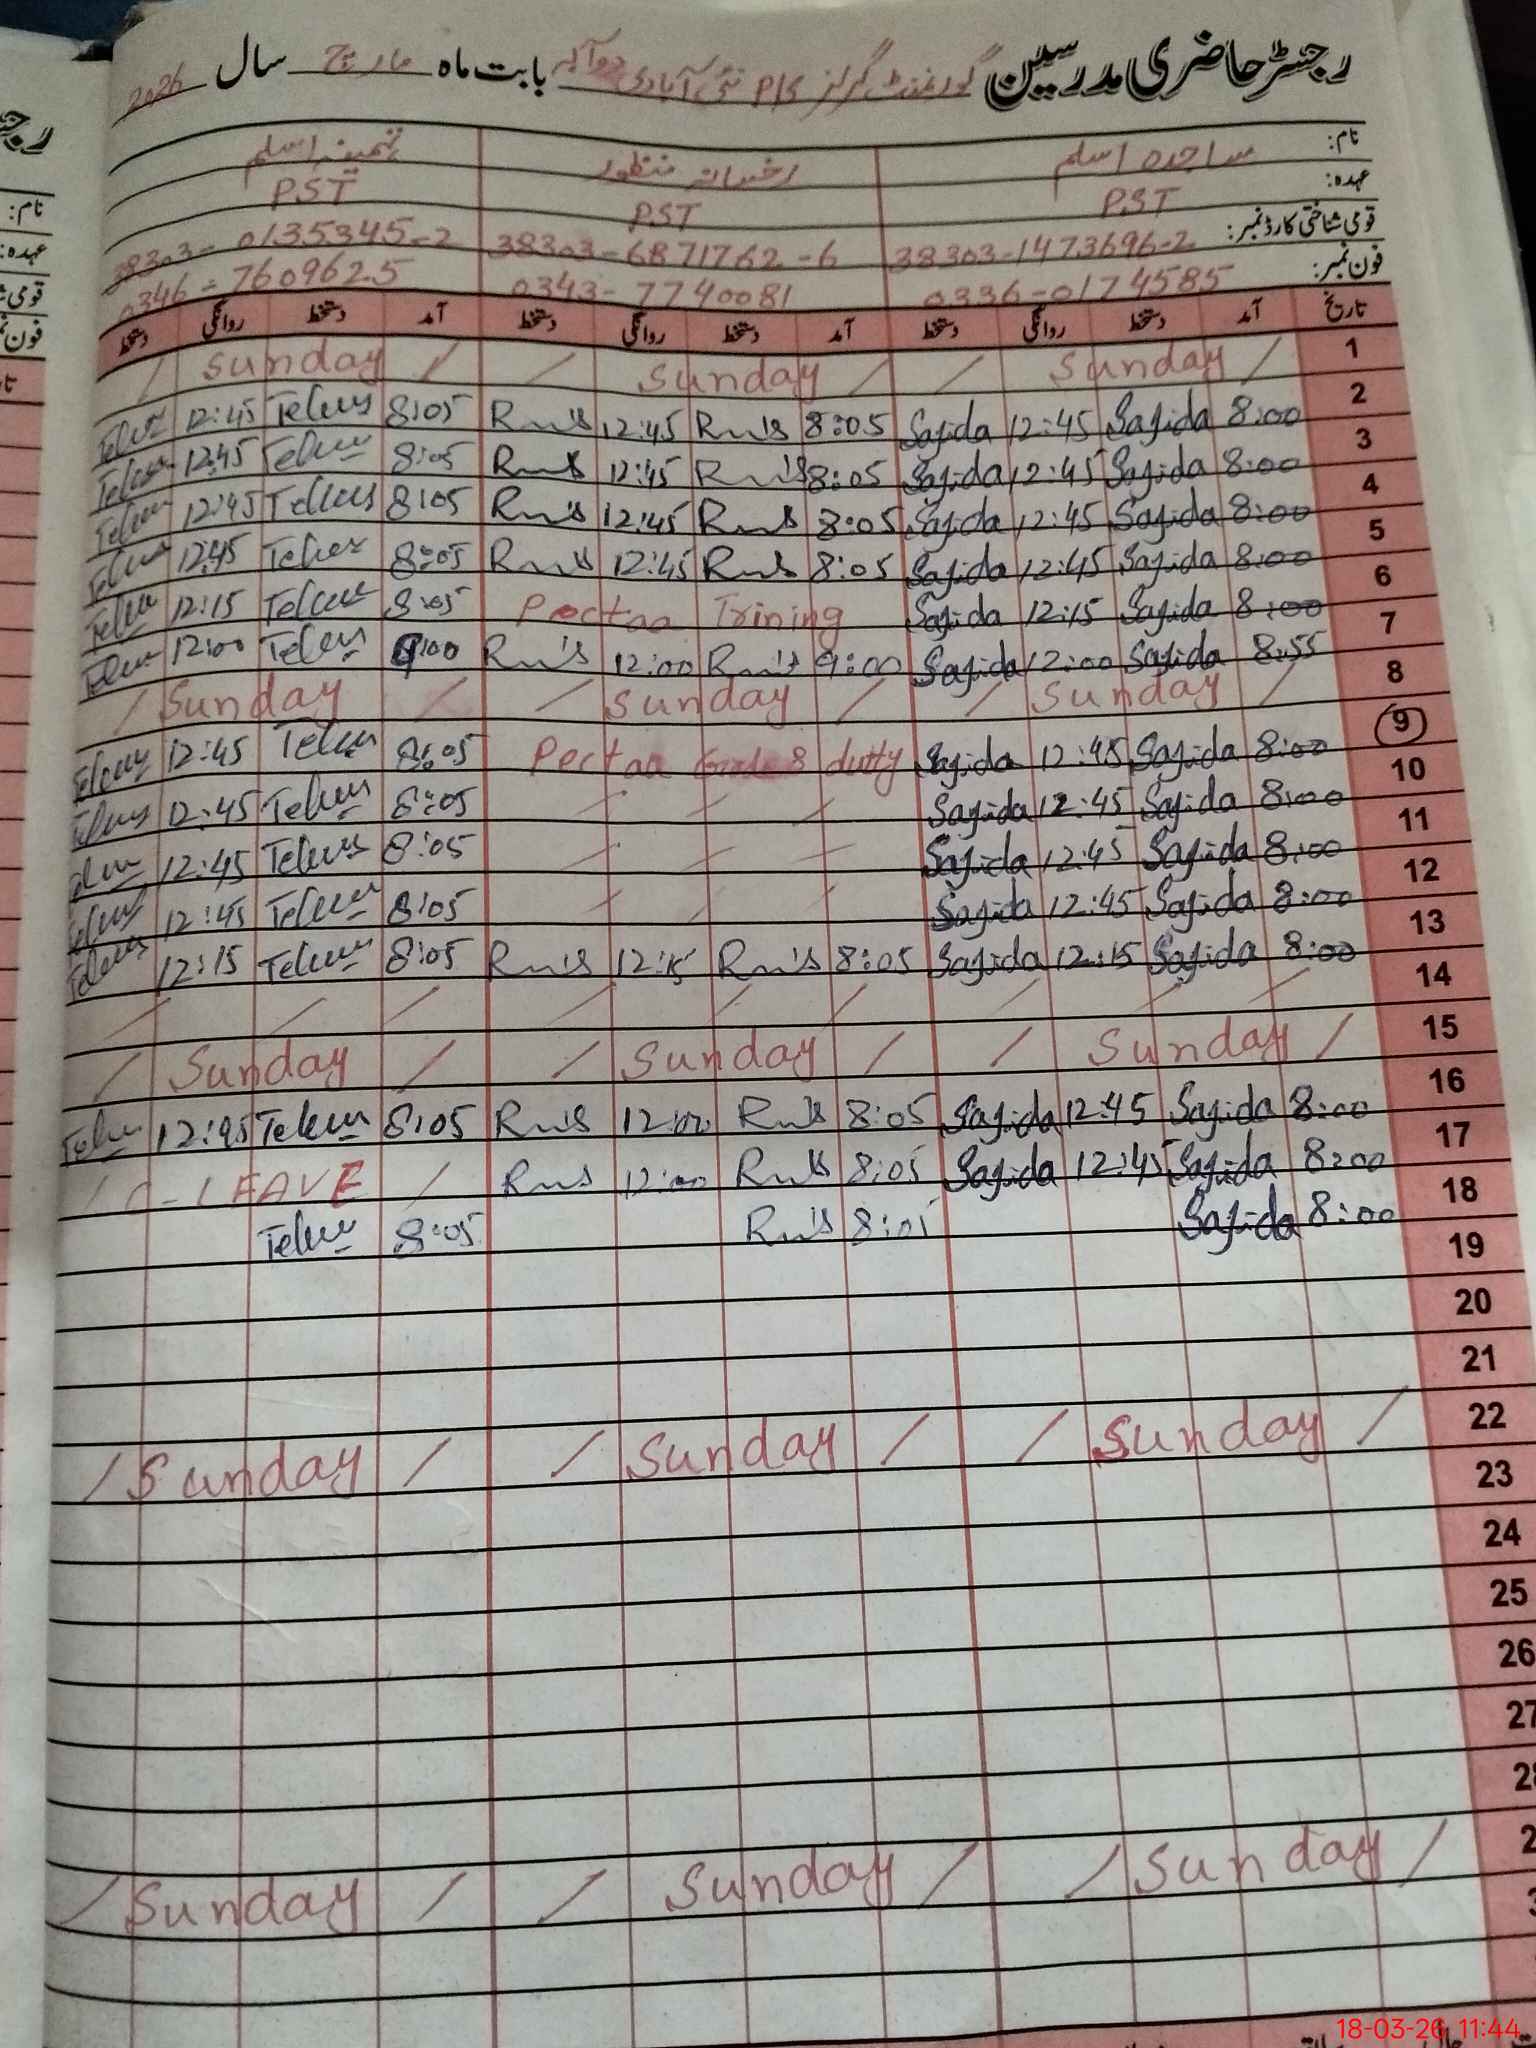 رجسٹر حاضری مدرسین گورنمنٹ گرلز P/S نئی آبادی بابت ماہ مارچ سال 2026
نام: ساجدہ اسلم رخسانہ منظور ثمینہ اسلم
عہدہ: PST PST PST
قومی شناختی کارڈ نمبر: 38303-1473696-2 38303-6871762-6 38303-0135345-2
فون نمبر: 0336-0174585 0343-7740081 0346-7609625
تاریخ آمد دستخط روانگی دستخط آمد دستخط روانگی دستخط آمد دستخط روانگی دستخط
1 / Sunday / / Sunday / / Sunday /
2 8:00 Sajida 12:45 Sajida 8:05 12:45 8:05 12:45
3 8:00 Sajida 12:45 Sajida 8:05 12:45 8:05 12:45
4 8:00 Sajida 12:45 Sajida 8:05 12:45 8:05 12:45
5 8:00 Sajida 12:45 Sajida 8:05 12:45 8:05 12:45
6 8:00 Sajida 12:15 Sajida Pectaa Trining 8:05 12:15
7 8:55 Sajida 12:00 Sajida 9:00 12:00 9:00 12:00
8 / Sunday / / Sunday / / Sunday /
9 8:00 Sajida 12:45 Sajida Pectaa Grade 8 dutty 8:05 12:45
10 8:00 Sajida 12:45 Sajida / / / 8:05 12:45
11 8:00 Sajida 12:45 Sajida / / / 8:05 12:45
12 8:00 Sajida 12:45 Sajida / / / 8:05 12:45
13 8:00 Sajida 12:15 Sajida 8:05 12:15 8:05 12:15
14 / / / / / / / / /
15 / Sunday / / Sunday / / Sunday /
16 8:00 Sajida 12:45 Sajida 8:05 12:00 8:05 12:45
17 8:00 Sajida 12:45 Sajida 8:05 12:00 / C-LEAVE /
18 8:00 Sajida 8:05 8:05
19
20
21
22 / Sunday / / Sunday / / Sunday /
23
24
25
26
27
28
2 / Sunday / / Sunday / / Sunday /
3
18-03-26 11:44